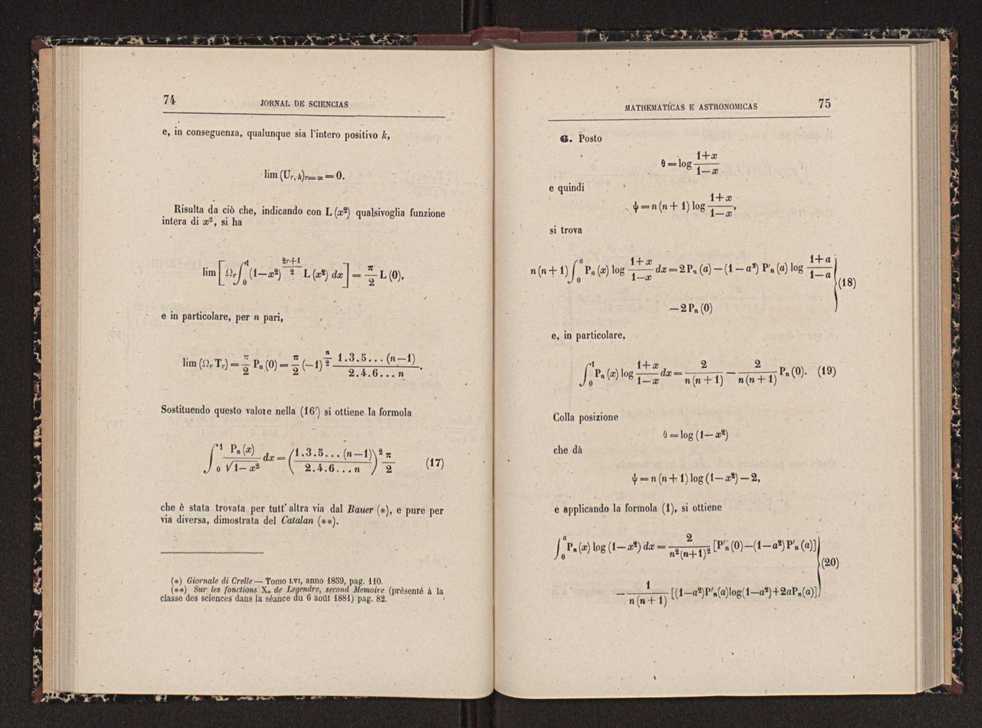 74 JORNAL DE SCIENCIAS
e, in conseguenza, qualunque sia l'intero positivo k,
lim (U_{r, k})_{r=∞} = 0.
Risulta da ciò che, indicando con L (x²) qualsivoglia funzione
intera di x², si ha
lim [Ω_r ∫_0^1 (1—x²)^{\frac{2r+1}{2}} L (x²) dx] = \frac{π}{2} L (0),
e in particolare, per n pari,
lim (Ω_r T_r) = \frac{π}{2} P_n (0) = \frac{π}{2} (—1)^{\frac{n}{2}} \frac{1.3.5...(n—1)}{2.4.6...n}.
Sostituendo questo valore nella (16') si ottiene la formola
∫_0^1 \frac{P_n (x)}{√1—x²} dx = (\frac{1.3.5...(n—1)}{2.4.6...n})² \frac{π}{2} (17)
che è stata trovata per tutt' altra via dal Bauer (*), e pure per
via diversa, dimostrata del Catalan (**).
(*) Giornale di Crelle — Tomo LVI, anno 1859, pag. 110.
(**) Sur les fonctions X_n de Legendre, second Memoire (présenté à la
classe des sciences dans la séance du 6 août 1881) pag. 82.
MATHEMATICAS E ASTRONOMICAS 75
6. Posto
θ = log \frac{1+x}{1—x}
e quindi
ψ = n (n + 1) log \frac{1+x}{1—x},
si trova
n (n + 1) ∫_0^a P_n (x) log \frac{1+x}{1—x} dx = 2 P_n (a) — (1 — a²) P'_n (a) log \frac{1+a}{1—a}
— 2 P_n (0) (18)
e, in particolare,
∫_0^1 P_n (x) log \frac{1+x}{1—x} dx = \frac{2}{n (n + 1)} — \frac{2}{n (n + 1)} P_n (0). (19)
Colla posizione
θ = log (1—x²)
che dà
ψ = n (n + 1) log (1—x²) — 2,
e applicando la formola (1), si ottiene
∫_0^a P_n (x) log (1—x²) dx = \frac{2}{n² (n+1)²} [P'_n (0) — (1—a²) P'_n (a)]
— \frac{1}{n (n + 1)} [(1—a²) P'_n (a) log (1—a²) + 2a P_n (a)] (20)